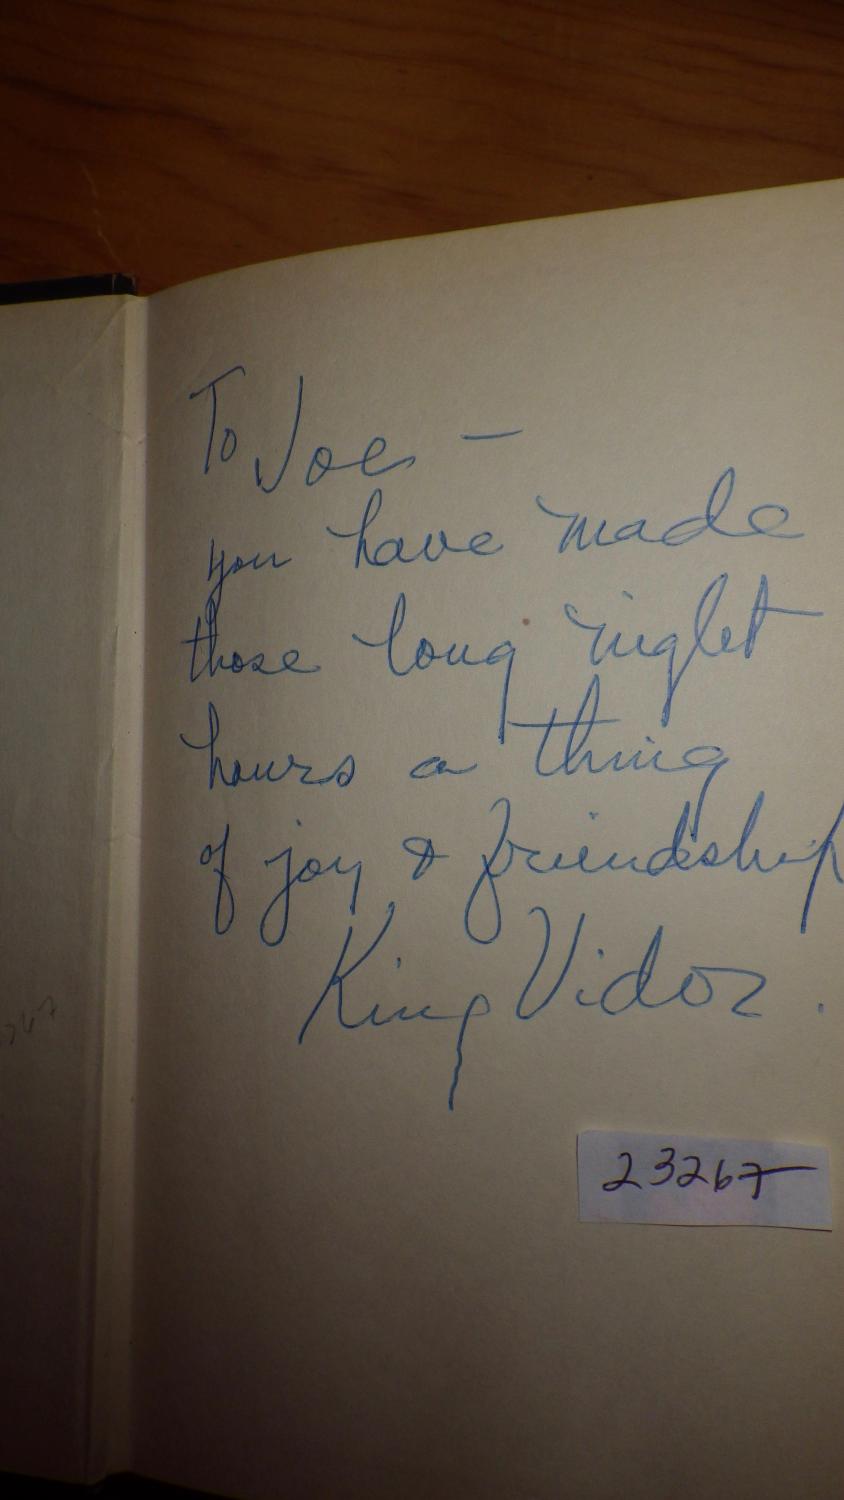 To Joe —
you have made
those long night
hours a thing
of joy & friendship
King Vidor.
23267